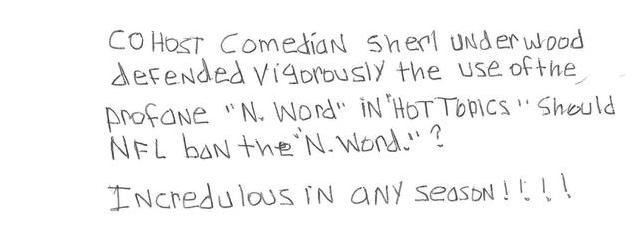 COHOST Comedian Sherl Underwood
defended vigorously the use of the
profane "N. Word" in "HOT TOPICS" Should
NFL ban the "N. Word."?
Incredulous in any season!!!!